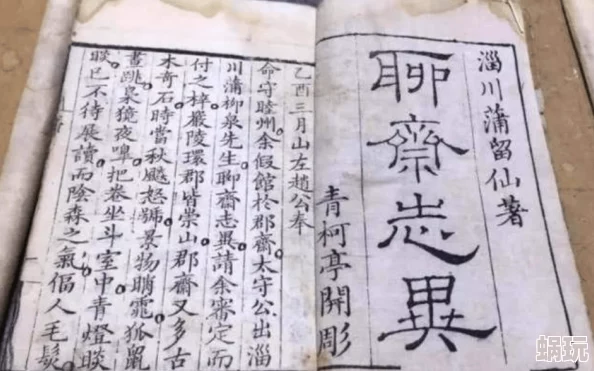 淄川蒲留仙著
聊齋志異
青柯亭開彫
乙酉三月山左趙公奉
命守睦州余假館於郡齋太守公出淄
川蒲柳泉先生聊齋志異請余審定而
付之梓嚴陵環郡皆崇山郡齋又多古
木奇石時當秋飇怒號景物睄窕狐鼠
晝跳梟獍夜嘷把卷坐斗室中青燈睒
睒已不待展讀而陰森之氣偪人毛髮
蜗玩